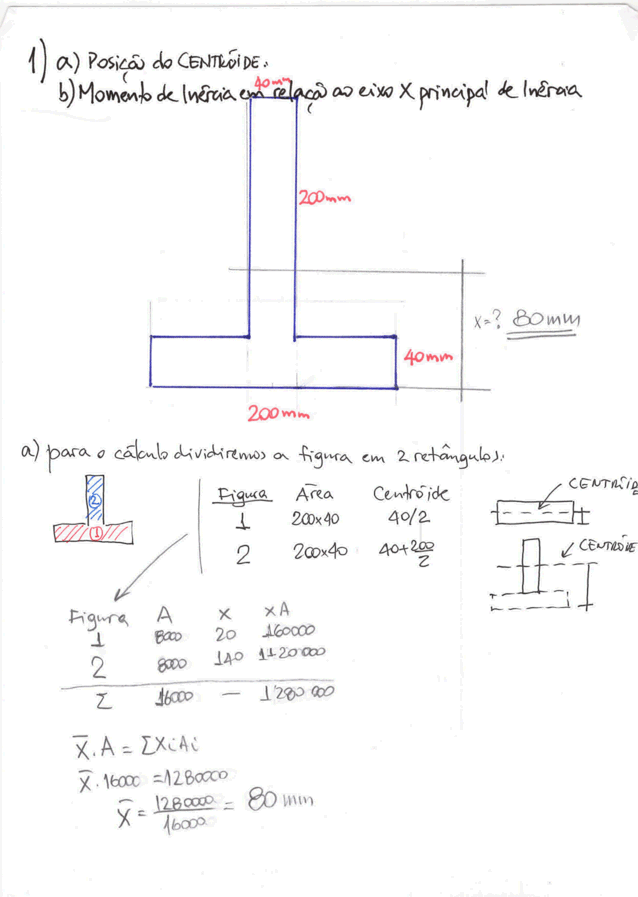 1) a) Posição do CENTRÓIDE.
b) Momento de Inércia em relação ao eixo X principal de Inércia
40mm
200mm
x=? 80mm
40mm
200mm
a) para o cálculo dividiremos a figura em 2 retângulos:
2
1
Figura Área Centróide
1 200x40 40/2
2 200x40 40+200/2
CENTRÓIDE
CENTRÓIDE
Figura A x xA
1 8000 20 160000
2 8000 140 1120000
Σ 16000 — 1280000
X̄.A = ΣXiAi
X̄.16000 = 1280000
X̄ = 1280000/16000 = 80 mm